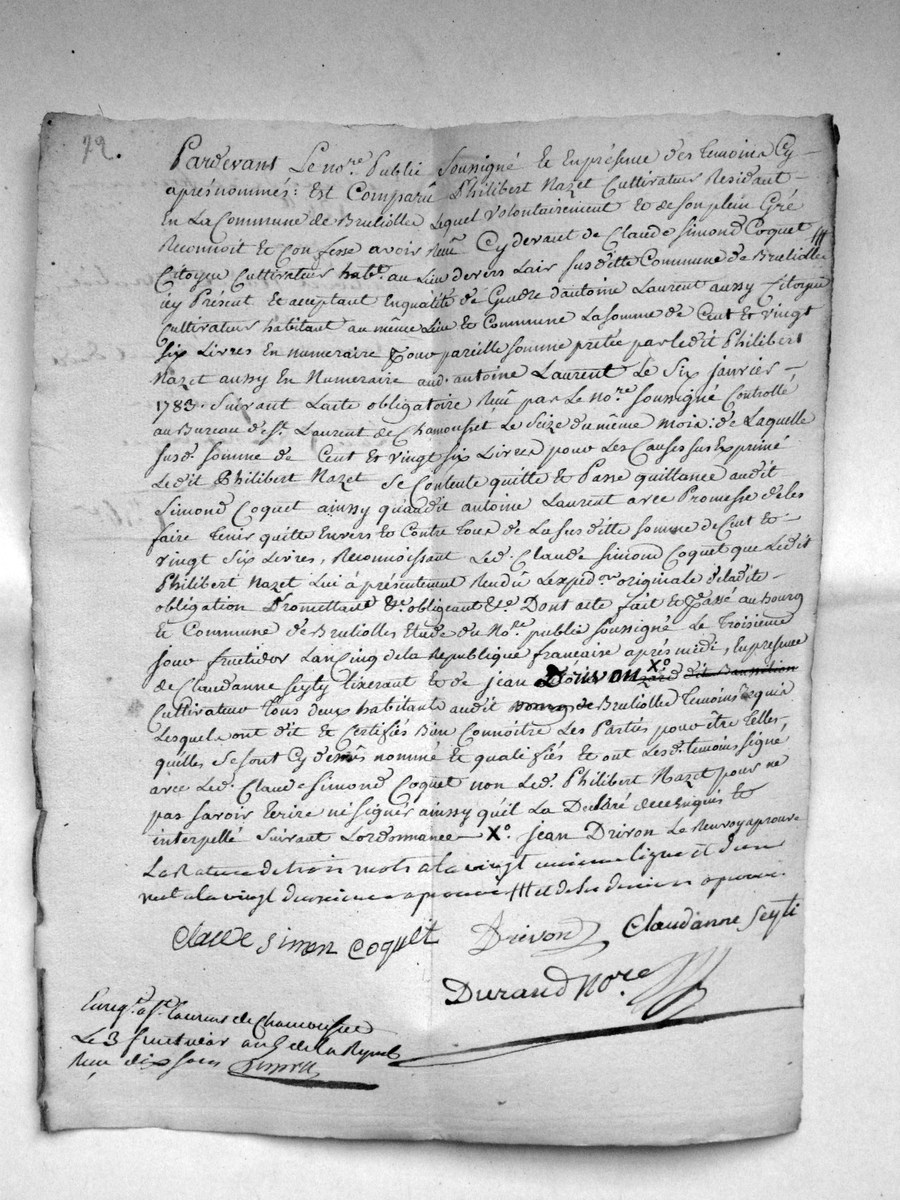 29.
Pardevant Le no.re Public Soussigné Et En présence des temoins Cy
aprés nommés: Est Comparû Philibert Nazet Cultivateur Residant
En La Commune de Brulliolle Lequel volontairement Et de son plein Gré
Reconnoit Et Confesse avoir Reçû Cy devant de Claude Simond Coquet
Citoyen Cultivateur habt. au Lieu de vers Lair Susditte Commune de Brulliolle
icy Présent Et acceptant En qualité de Gendre d'antoine Laurent aussy Citoyen
Cultivateur habitant au même Lieu Et Commune La somme de Cent Et vingt
Six Livres En numeraire pour pareille somme pretée par Ledit Philibert
Nazet aussy En Numeraire aud. antoine Laurent Le Six janvier
1783. Suivant Lacte obligatoire Reçû par Le no.re Soussigné Controllé
au Bureau de St. Laurent de Chamousset Le Seize du même mois: de Laquelle
susd. somme de Cent Et vingt Six Livres pour Les Causes sus Exprimé
Ledit Philibert Nazet se Contente quitte Et Passe quittance audit
Simond Coquet ainssy qu'audit antoine Laurent avec Promesse de les
faire tenir quitte Envers Et Contre tous de La susditte somme de Cent Et
vingt Six Livres, Reconnoissant Led. Claude Simond Coquet que Ledit
Philibert Nazet Lui à présentement Rendû Lexped.on originale de ladite
obligation Promettant &c. obligeant &c. Dont acte fait Et Passé au bourg
Et Commune de Brulliolles Etude du No.re public soussigné Le Troisieme
jour fructidor Lan Cinq de la Republique francaise aprés midi, En presence
de Claudanne Seyty tixerant Et de jean Drivon X°
Cultivateur tous deux habitants audit Brulliolle temoins Requis
Lesquels ont dit Et Certifiés Bien Connoitre Les Parties pour être telles
quilles se sont Cy dessus nommé Et qualifiés Et ont Lesd. temoins signé
avec Led. Claude Simond Coquet non Led. Philibert Nazet pour ne
pas savoir Ecrire ni signer ainssy quil La Déclaré de ce Enquis Et
interpellé suivant Lordonnance X°. jean Drivon Le Renvoy aprouvé
La Rature de trois mots a la vingt unieme ligne et d'un
mot a la vingt deuxieme aprouvé
Claude Simon Coquet Drivon Claudanne Seyti
Durand No.re
Enreg. a St. Laurent de Chamousset
Le 3 fructidor an 5 de la Repub
Reçu dix sous